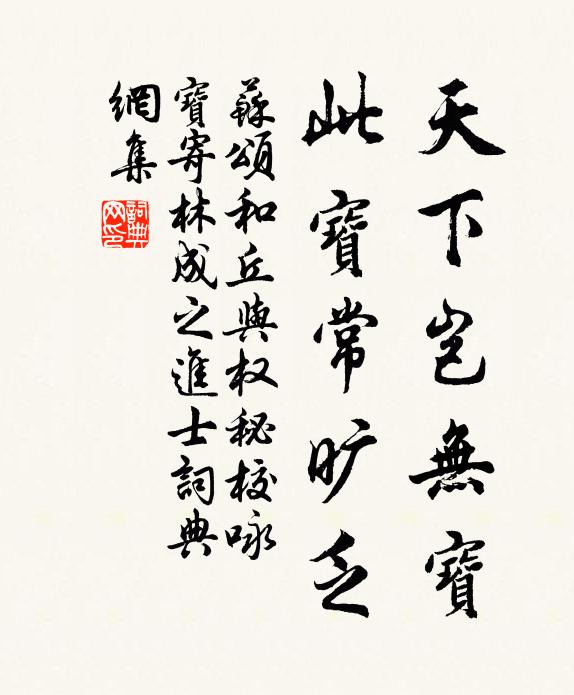 天下岂無寶
此寶常旷乏
蘇頌和丘與权秘校咏
寶寄林成之進士詞典
網集
詞典網印